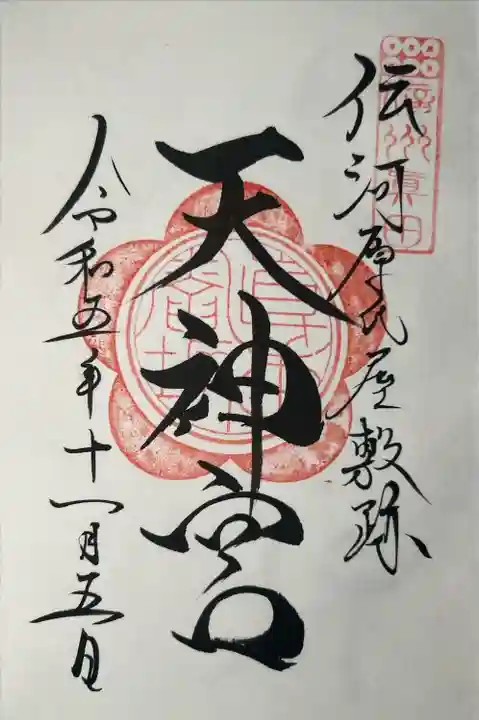 信州真田
伝河原氏屋敷跡
天神宮
令和五年十一月五日